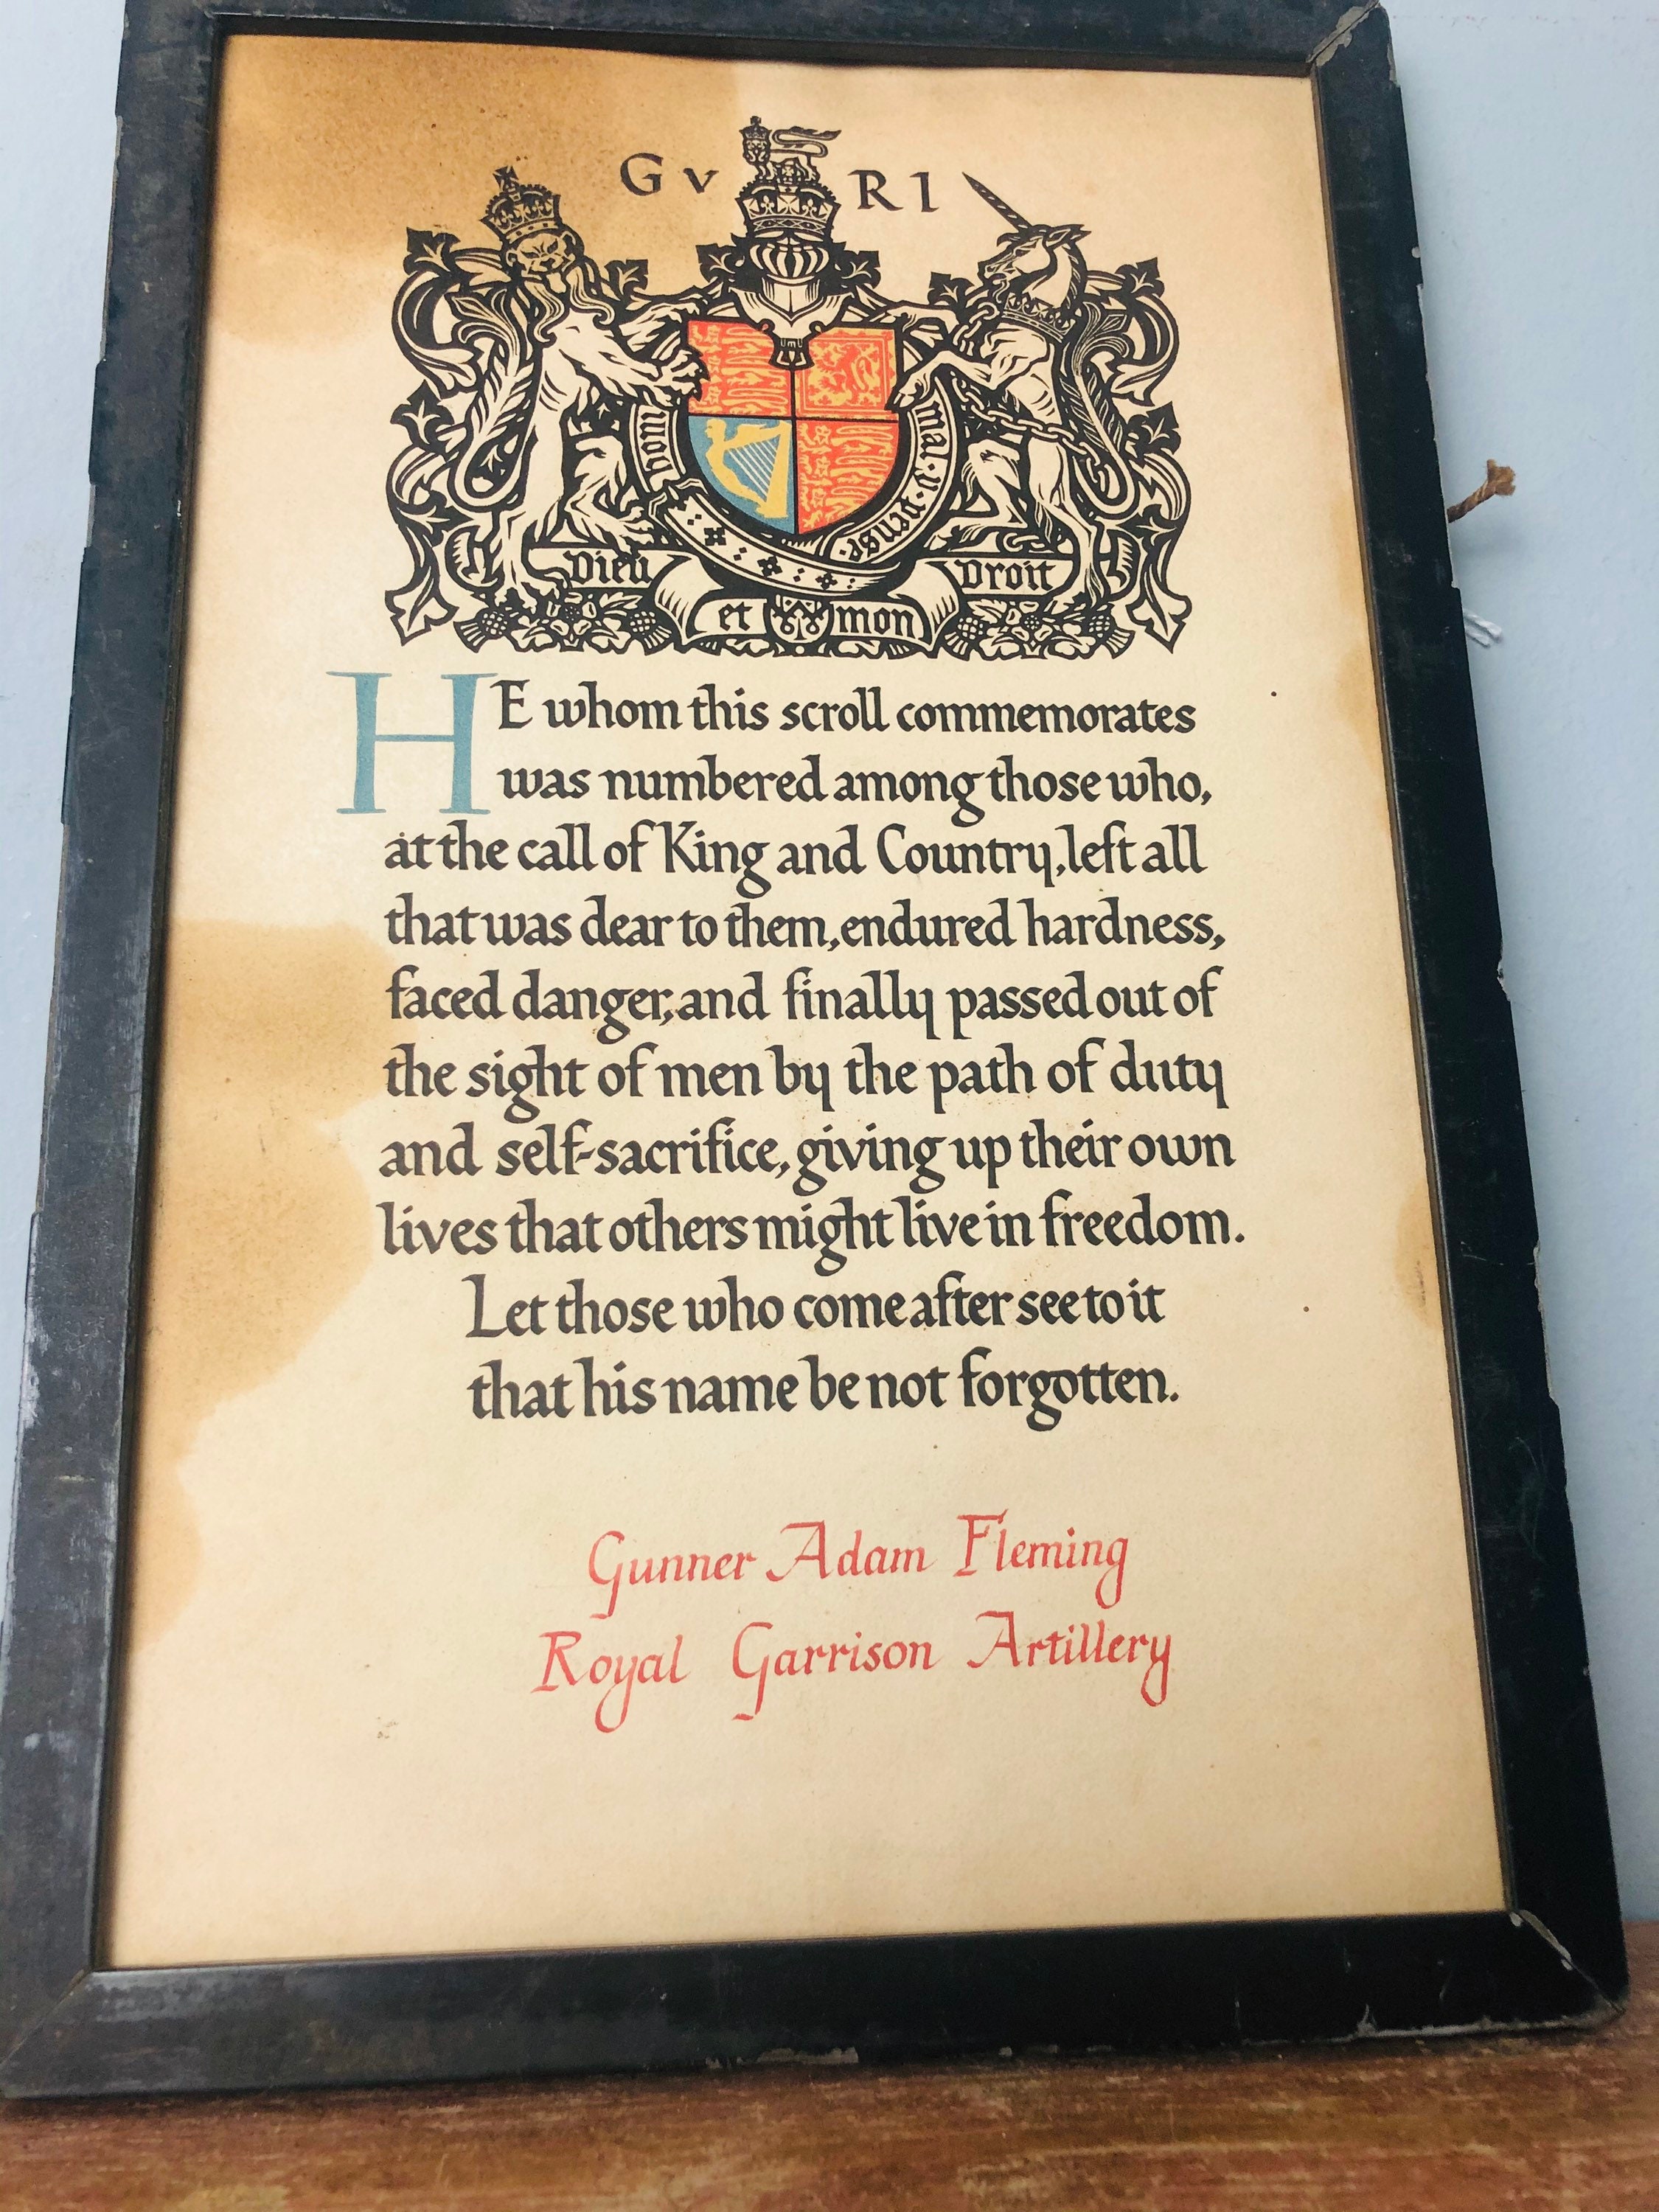 GV RI
mal·y·pense·
Dieu et mon Droit
HE whom this scroll commemorates
was numbered among those who,
at the call of King and Country, left all
that was dear to them, endured hardness,
faced danger, and finally passed out of
the sight of men by the path of duty
and self-sacrifice, giving up their own
lives that others might live in freedom.
Let those who come after see to it
that his name be not forgotten.
Gunner Adam Fleming
Royal Garrison Artillery